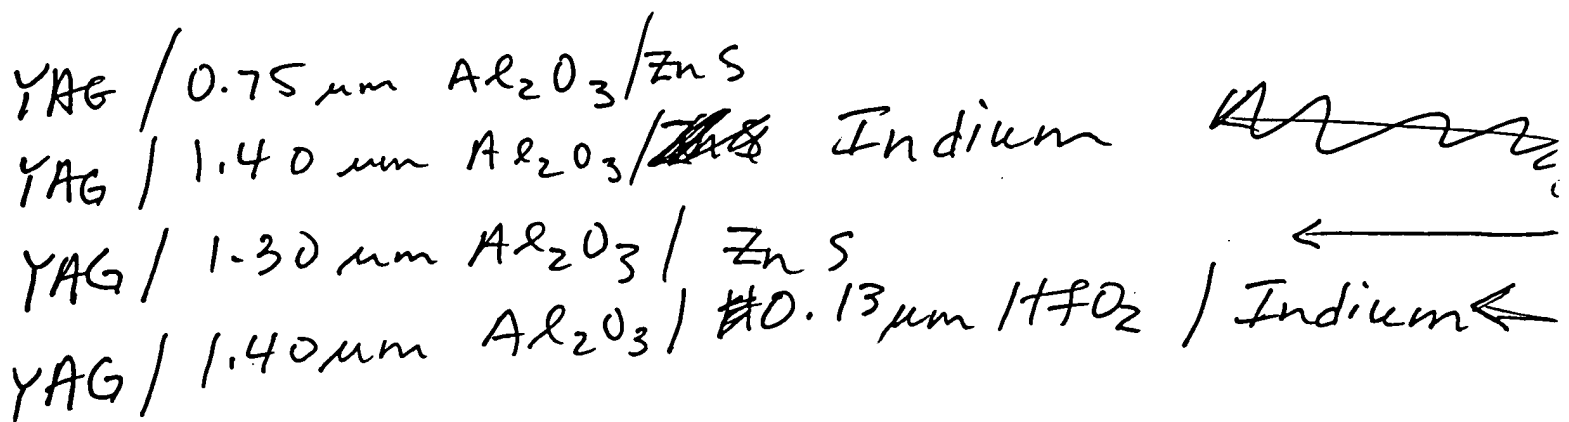 YAG / 0.75 μm Al₂O₃ / ZnS
YAG / 1.40 μm Al₂O₃ / Indium
YAG / 1.30 μm Al₂O₃ / ZnS
YAG / 1.40 μm Al₂O₃ / 0.13 μm HfO₂ / Indium